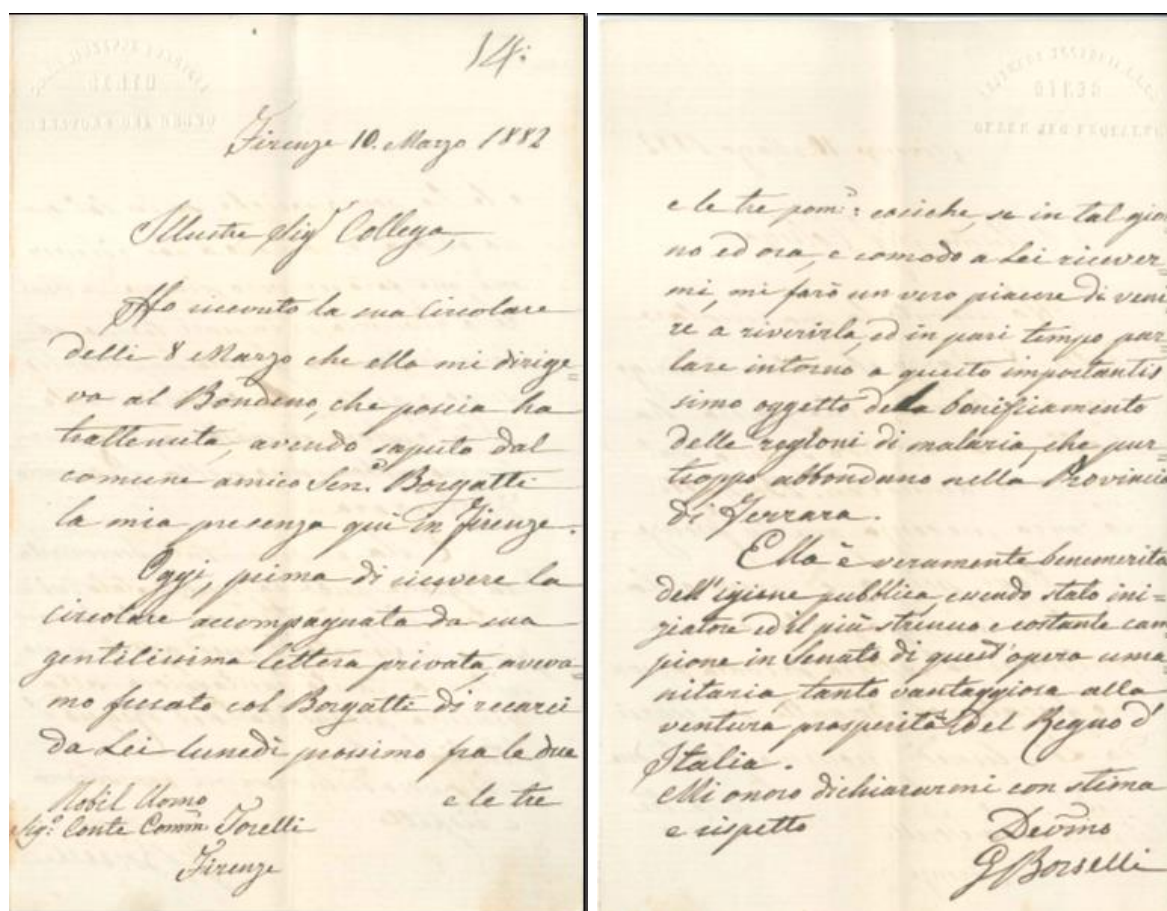 14:
Firenze 10. Marzo 1882
Illustre Sigr Collega,
Ho ricevuto la sua Circolare
delli 8 Marzo che ella mi dirige=
va al Bondeno, che poscia ha
trattenuta, avendo saputo dal
comune amico Sen. Borgatti
la mia presenza qui in Firenze.
Oggi, prima di ricevere la
circolare accompagnata da sua
gentilissima lettera privata, aveva=
mo fissato col Borgatti di recarci
da Lei lunedì prossimo fra le due
e le tre
Nobil Uomo
Sigr: Conte Comm. Torelli
Firenze
e le tre pom: cosiche, se in tal gior
no ed ora, è comodo a Lei ricever=
mi, mi farò un vero piacere di veni
re a riverirla, ed in pari tempo par=
lare intorno a questo importantis
simo oggetto della bonificamento
delle regioni di malaria, che pur=
troppo abbondano nella Provincia
di Ferrara.
Ella è veramente benemerita
dell'igiene pubblica, essendo stato ini=
ziatore ed il più strenuo e costante cam
pione in Senato di quest'opera uma
nitaria, tanto vantaggiosa alla
ventura prosperità del Regno d'
Italia.
Mi onoro dichiararmi con stima
e rispetto
Devmo
G Borselli